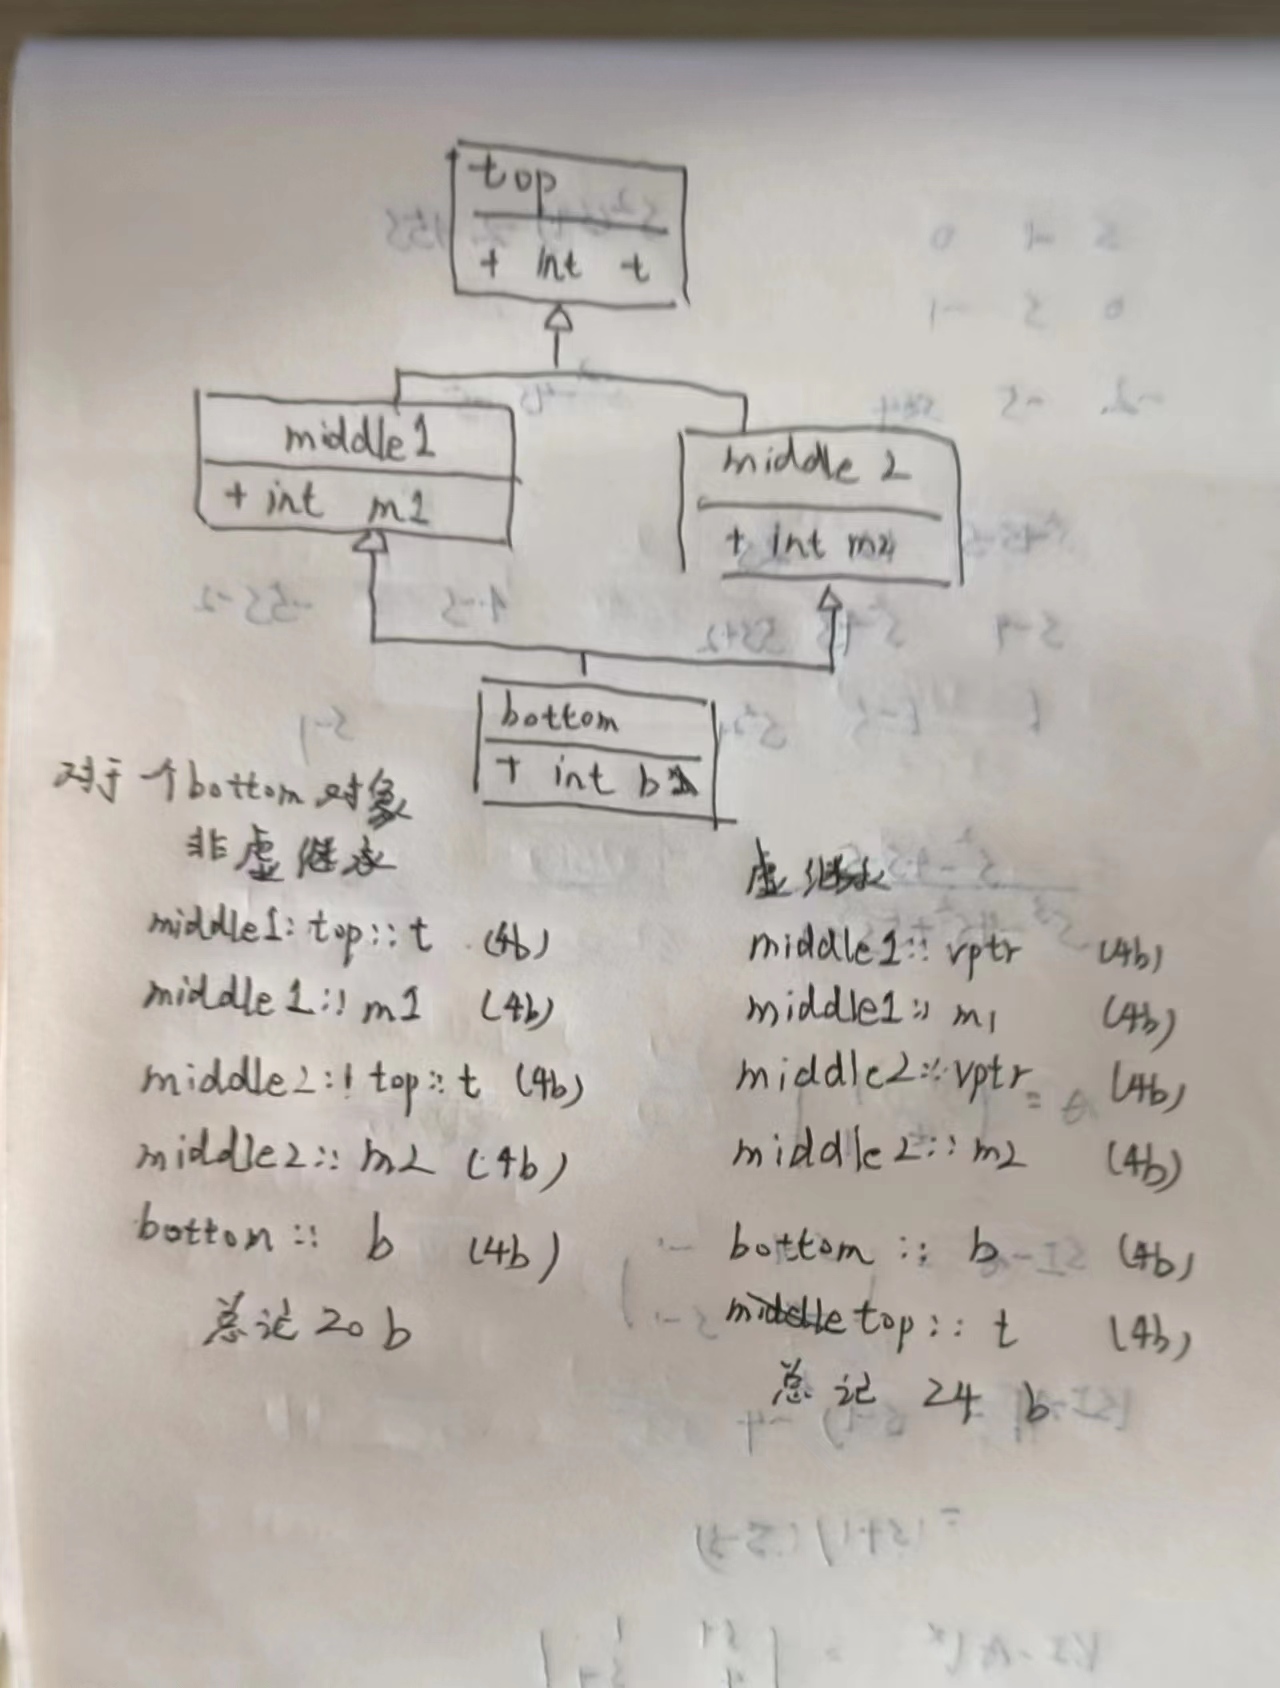 top
+ int t
middle1
+ int m1
middle 2
+ int m2
bottom
+ int b
对于一个bottom对象
非虚继承
middle1: top:: t (4b)
middle1:: m1 (4b)
middle2:: top:: t (4b)
middle2:: m2 (4b)
bottom :: b (4b)
总记 20 b
虚继承
middle1:: vptr (4b)
middle1:: m1 (4b)
middle2:: vptr (4b)
middle2:: m2 (4b)
bottom :: b (4b)
top:: t (4b)
总记 24 b